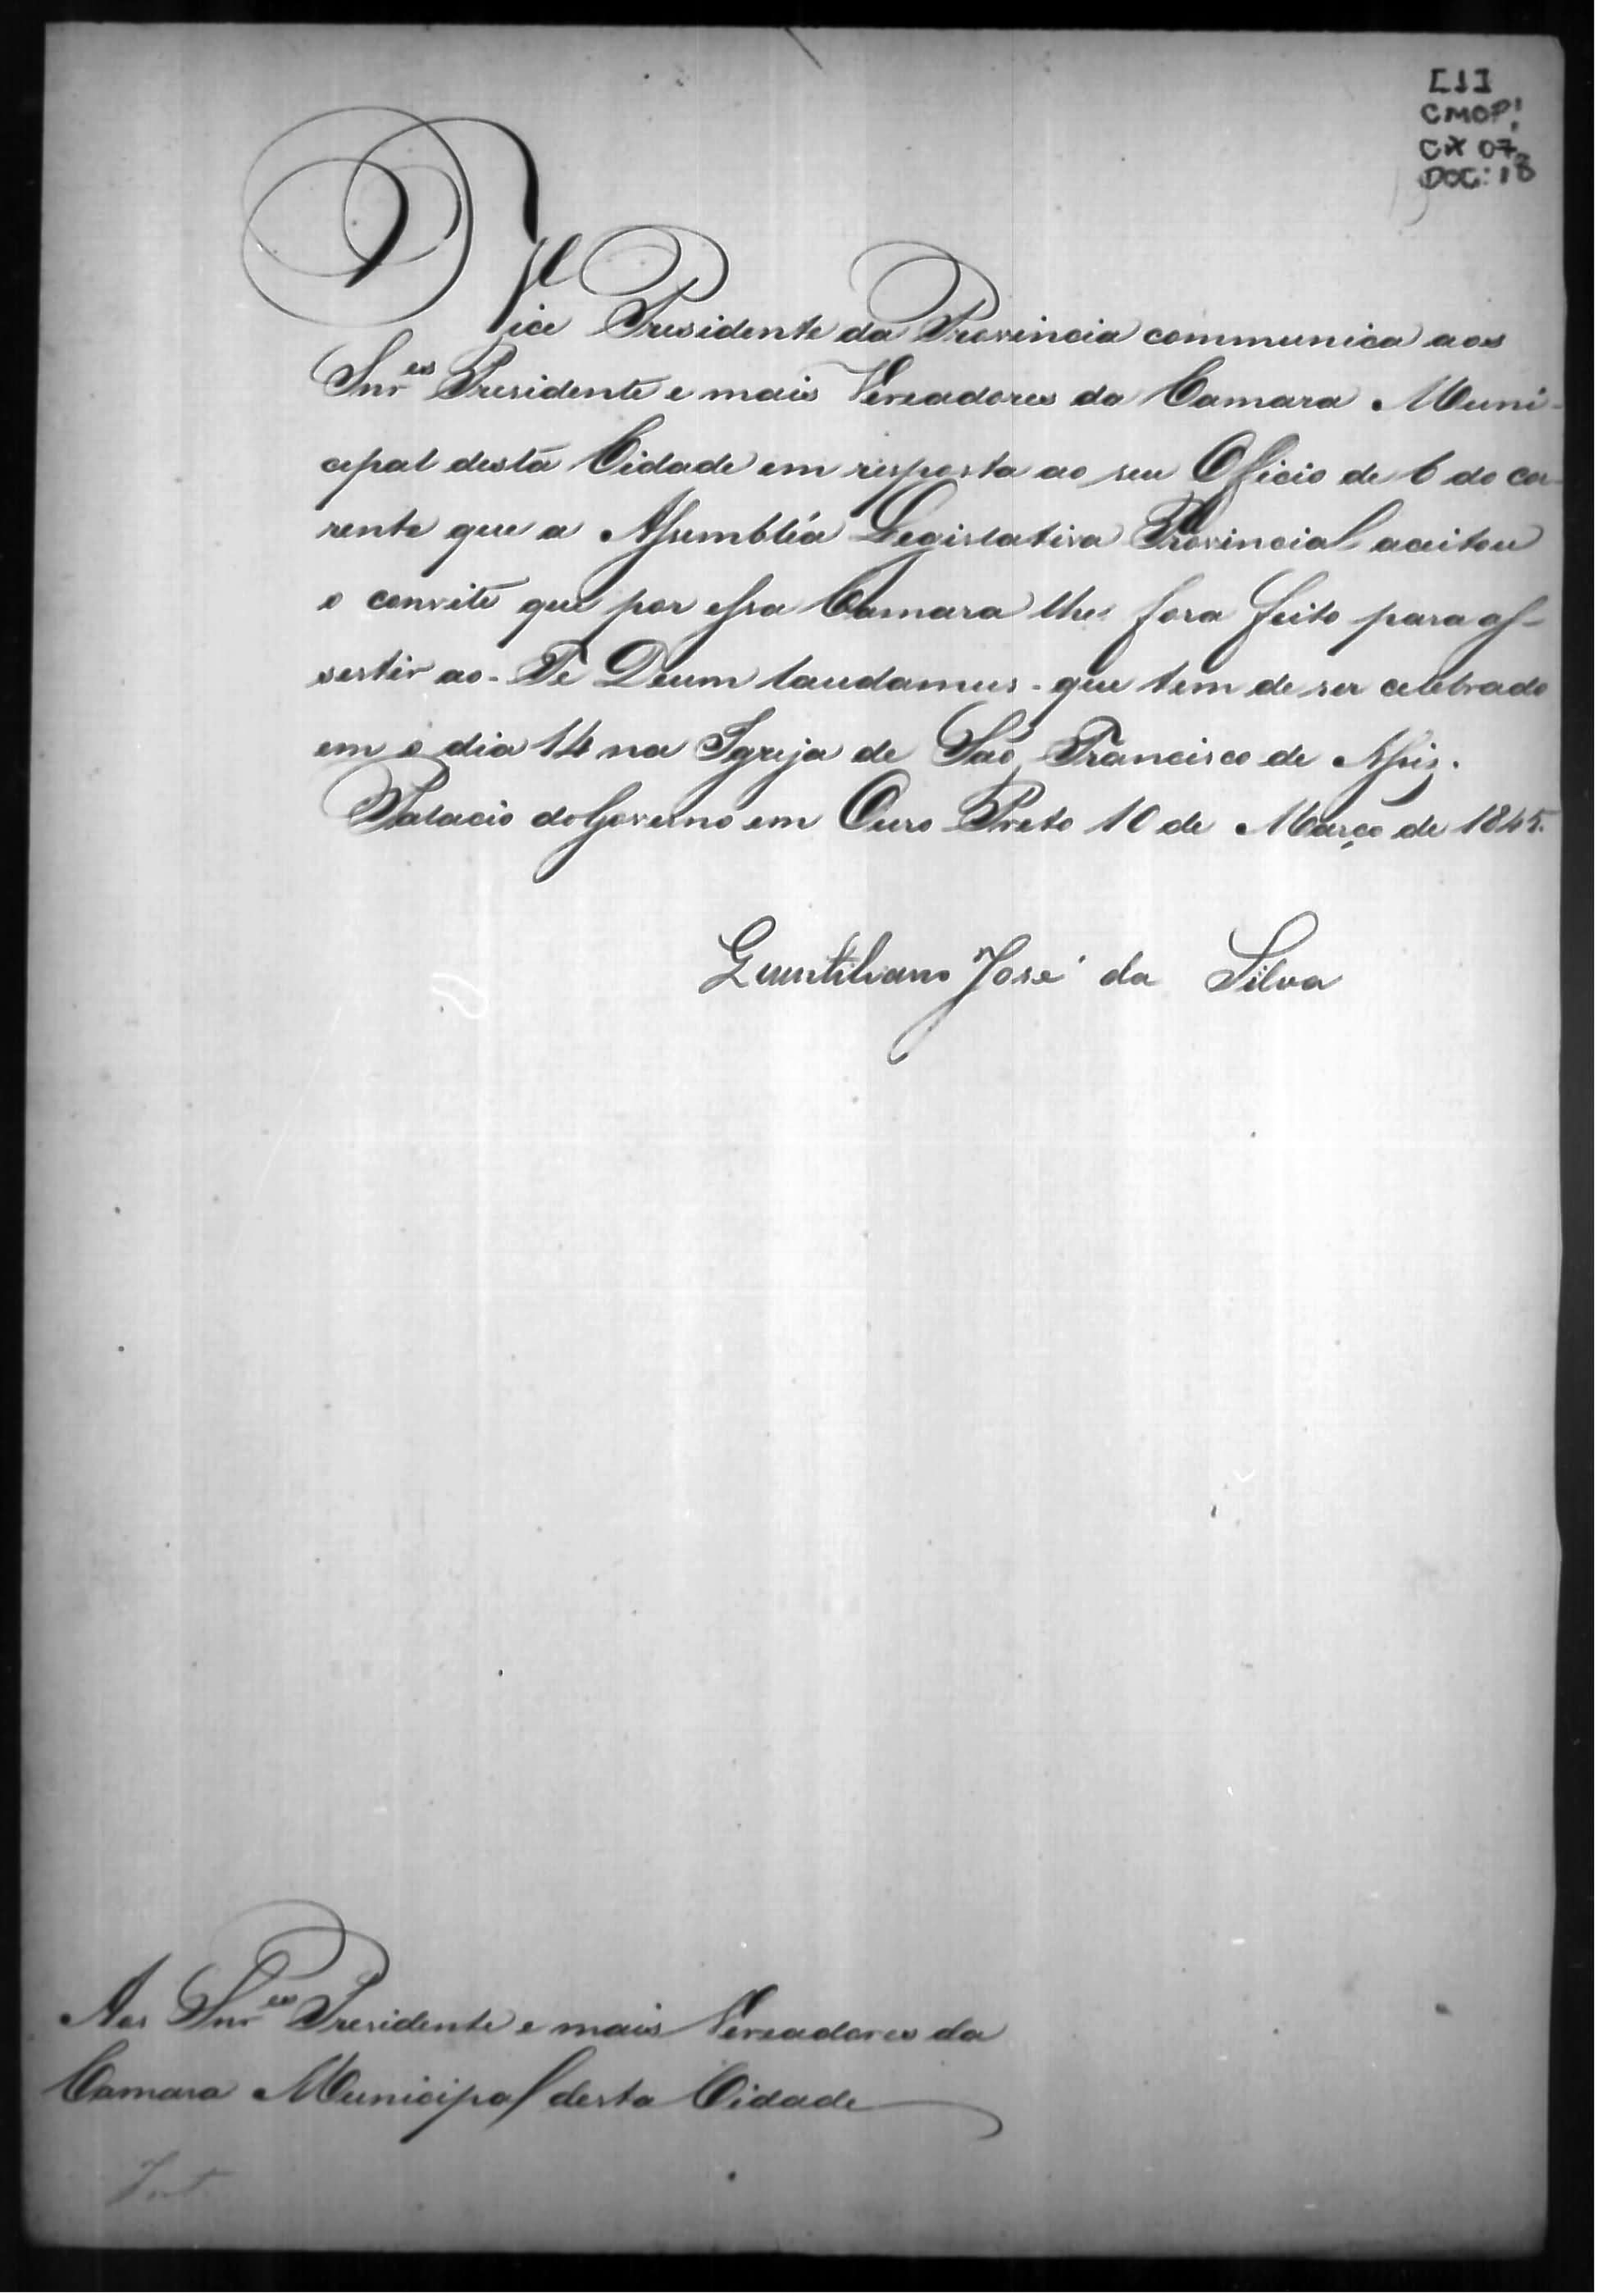 [1]
CMOP!
CX 07,
DOC: 18
O Vice Presidente da Provincia communica aos
Snr.es Presidente e mais Vereadores da Camara Muni-
cipal desta Cidade em resposta ao seu Officio de 6 do cor-
rente que a Assembléa Legislativa Provincial aceitou
o convite que por essa Camara lhe fora feito para as-
sestir ao - Te Deum laudamus - que tem de ser celebrado
em o dia 14 na Igreja de São Francisco de Assis.
Palacio do Governo em Ouro Preto 10 de Março de 1845.
Quintiliano José da Silva
Aos Snr.es Presidente e mais Vereadores da
Camara Municipal desta Cidade